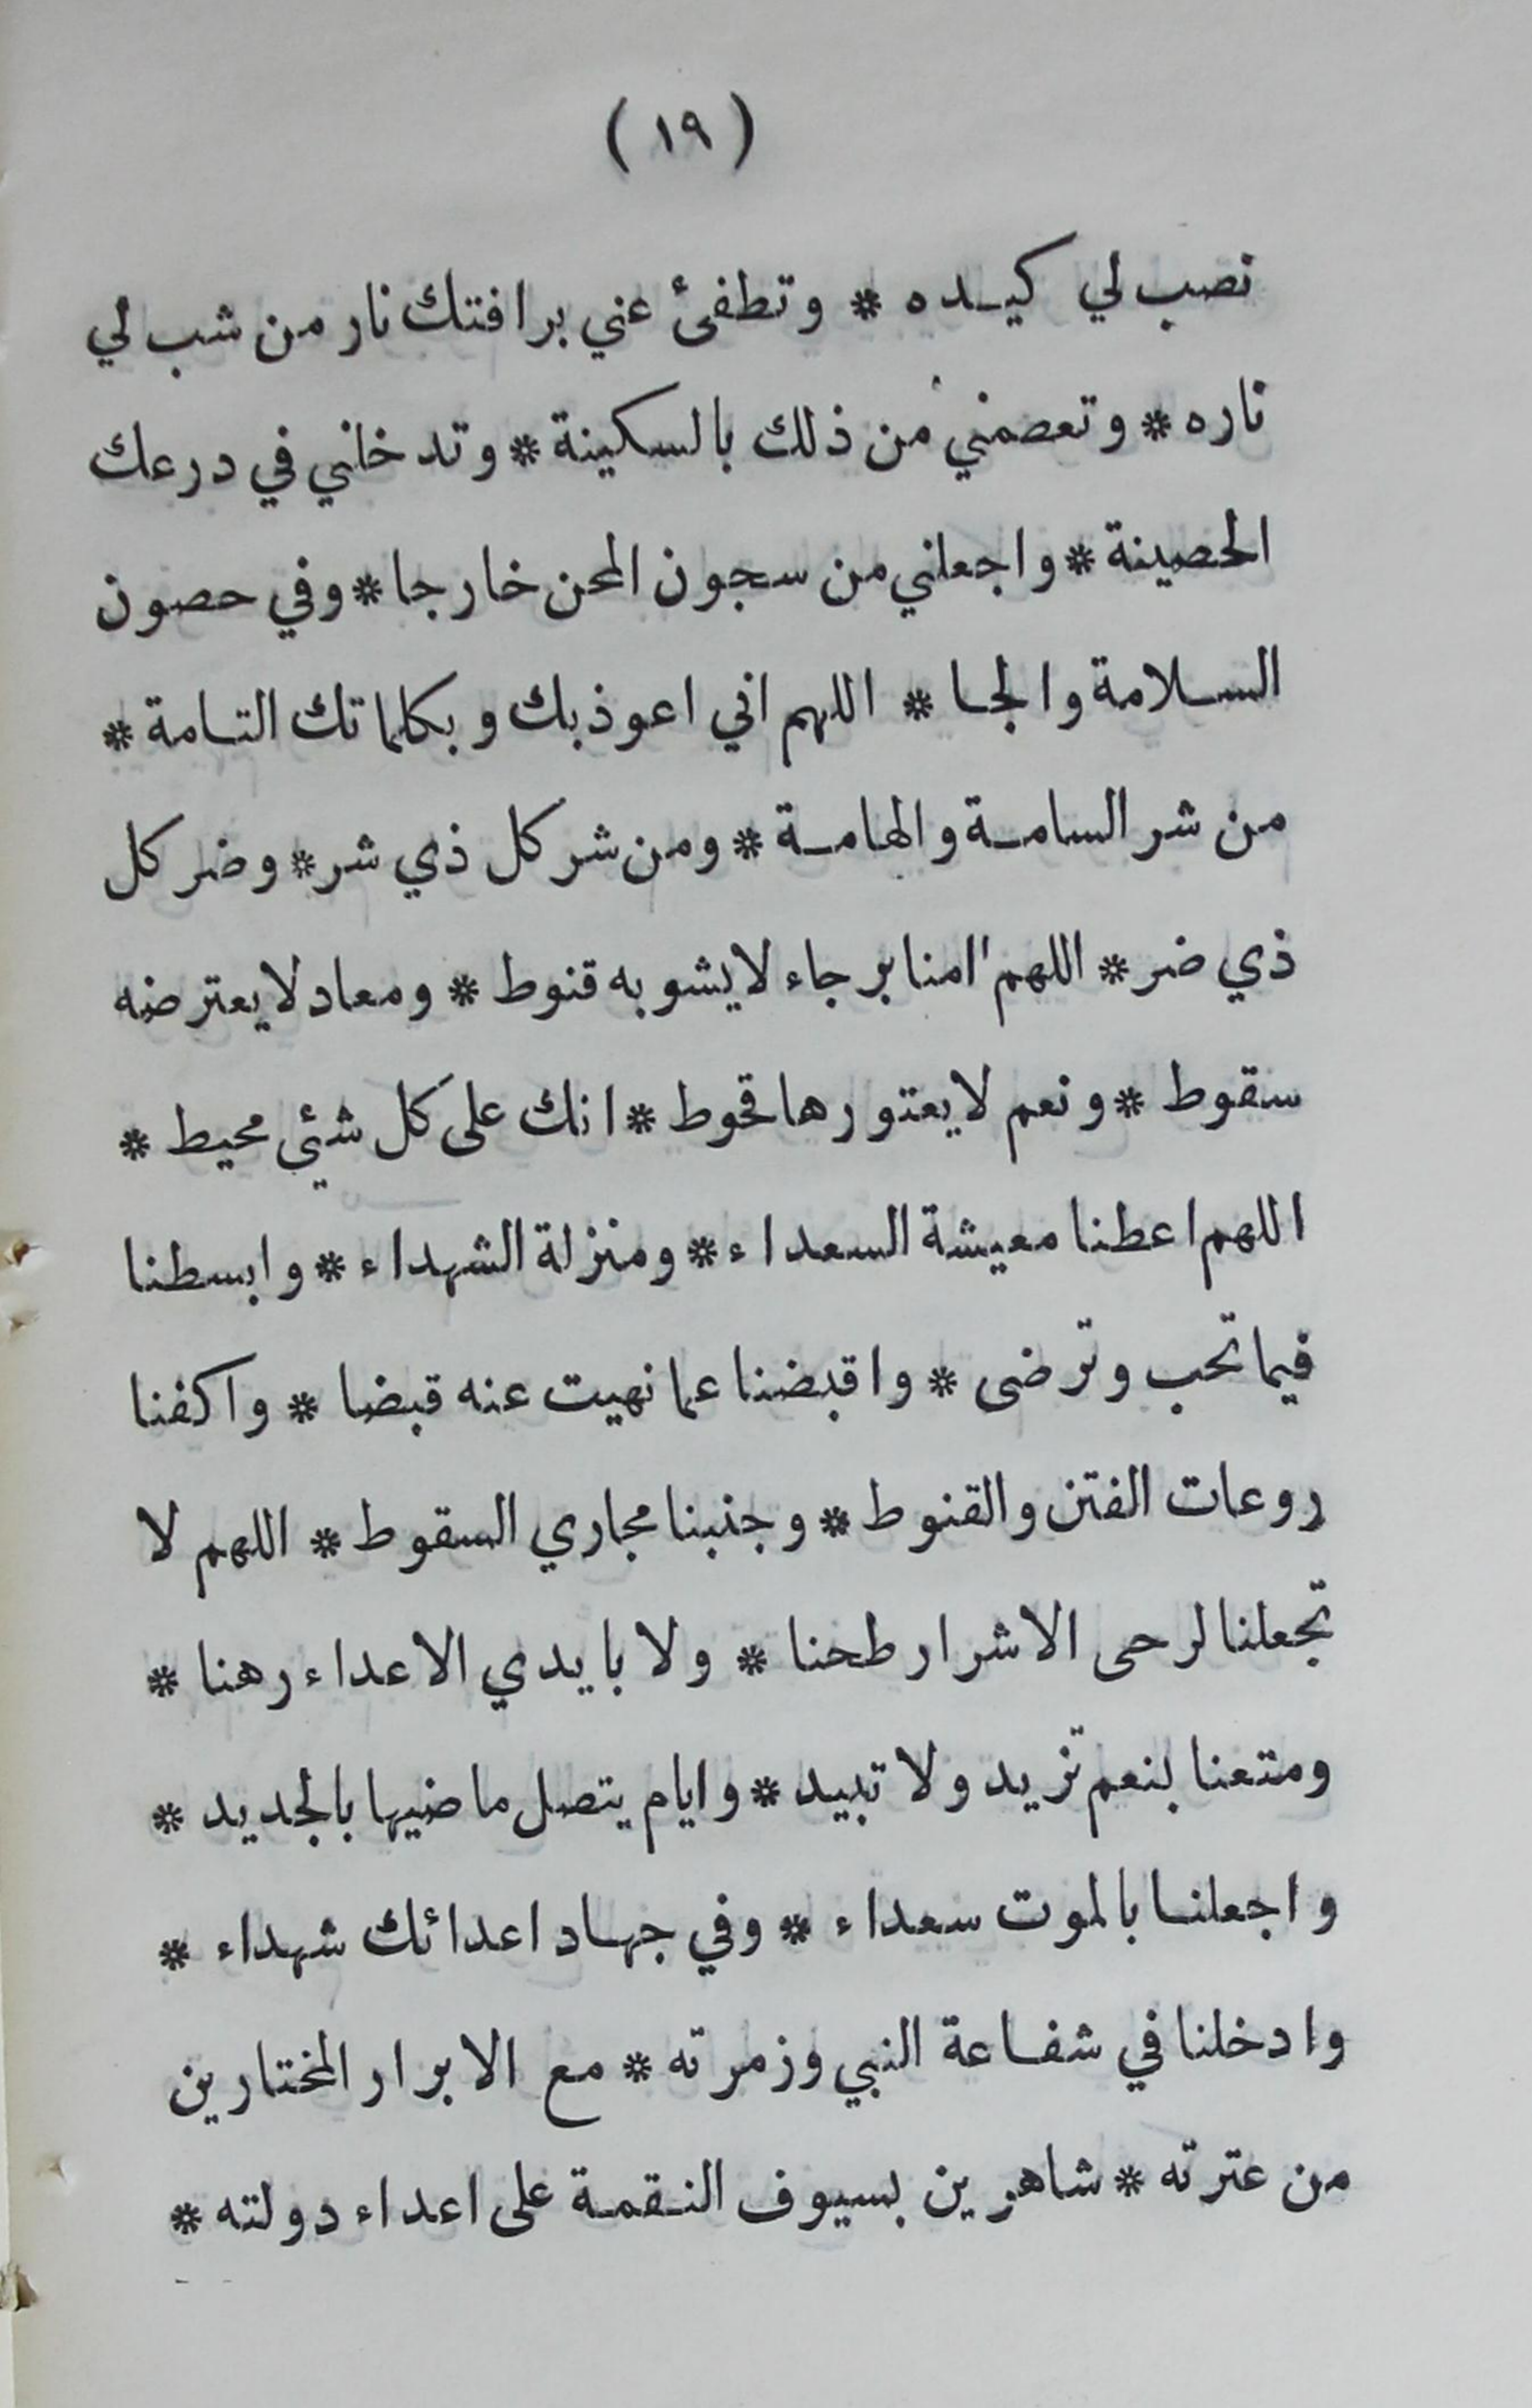 (١٩)
نصب لي كيده * وتطفئ عني برافتك نار من شب لي
ناره * وتعصمني من ذلك بالسكينة * وتدخلني في درعك
الحصينة * واجعلني من سجون المحن خارجا * وفي حصون
السلامة والجا * اللهم اني اعوذ بك وبكلماتك التامة *
من شر السامة والهامة * ومن شر كل ذي شر * وضر كل
ذي ضر * اللهم اامنا برجاء لا يشوبه قنوط * ومعاد لا يعترضه
سقوط * ونعم لا يعتورها قحوط * انك على كل شئي محيط *
اللهم اعطنا معيشة السعداء * ومنزلة الشهداء * وابسطنا
فيما تحب وترضى * واقبضنا عما نهيت عنه قبضا * واكفنا
روعات الفتن والقنوط * وجنبنا مجاري السقوط * اللهم لا
تجعلنا لرحى الاشرار طحنا * ولا بايدي الاعداء رهنا *
ومتعنا بنعم تزيد ولا تبيد * وايام يتصل ماضيها بالجديد *
واجعلنا بالموت سعداء * وفي جهاد اعدائك شهداء *
وادخلنا في شفاعة النبي وزمرته * مع الابرار المختارين
من عترته * شاهرين بسيوف النقمة على اعداء دولته *